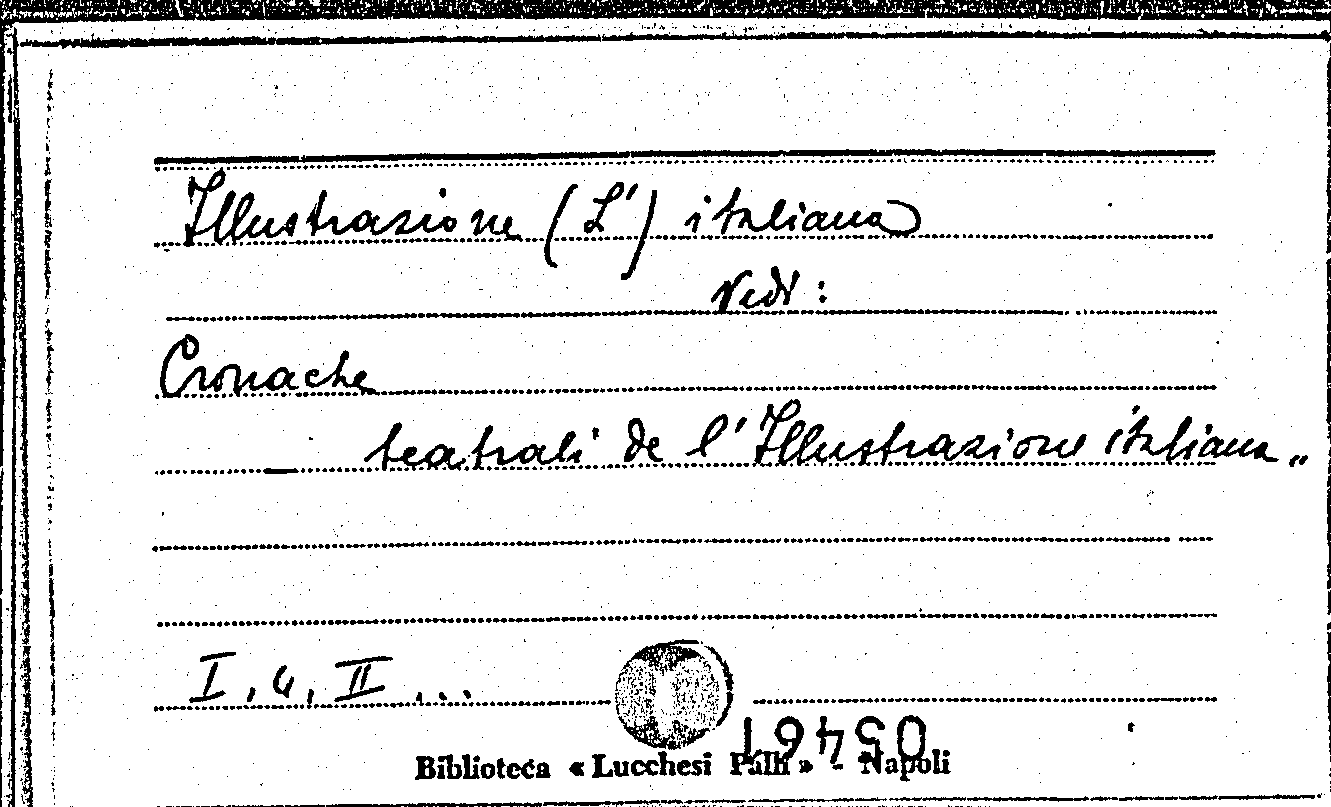 Illustrazione (L') italiana
Vedi:
Cronache
— teatrali de l'Illustrazione italiana „
I, 4, II ...
05461
Biblioteca « Lucchesi Palli » - Napoli